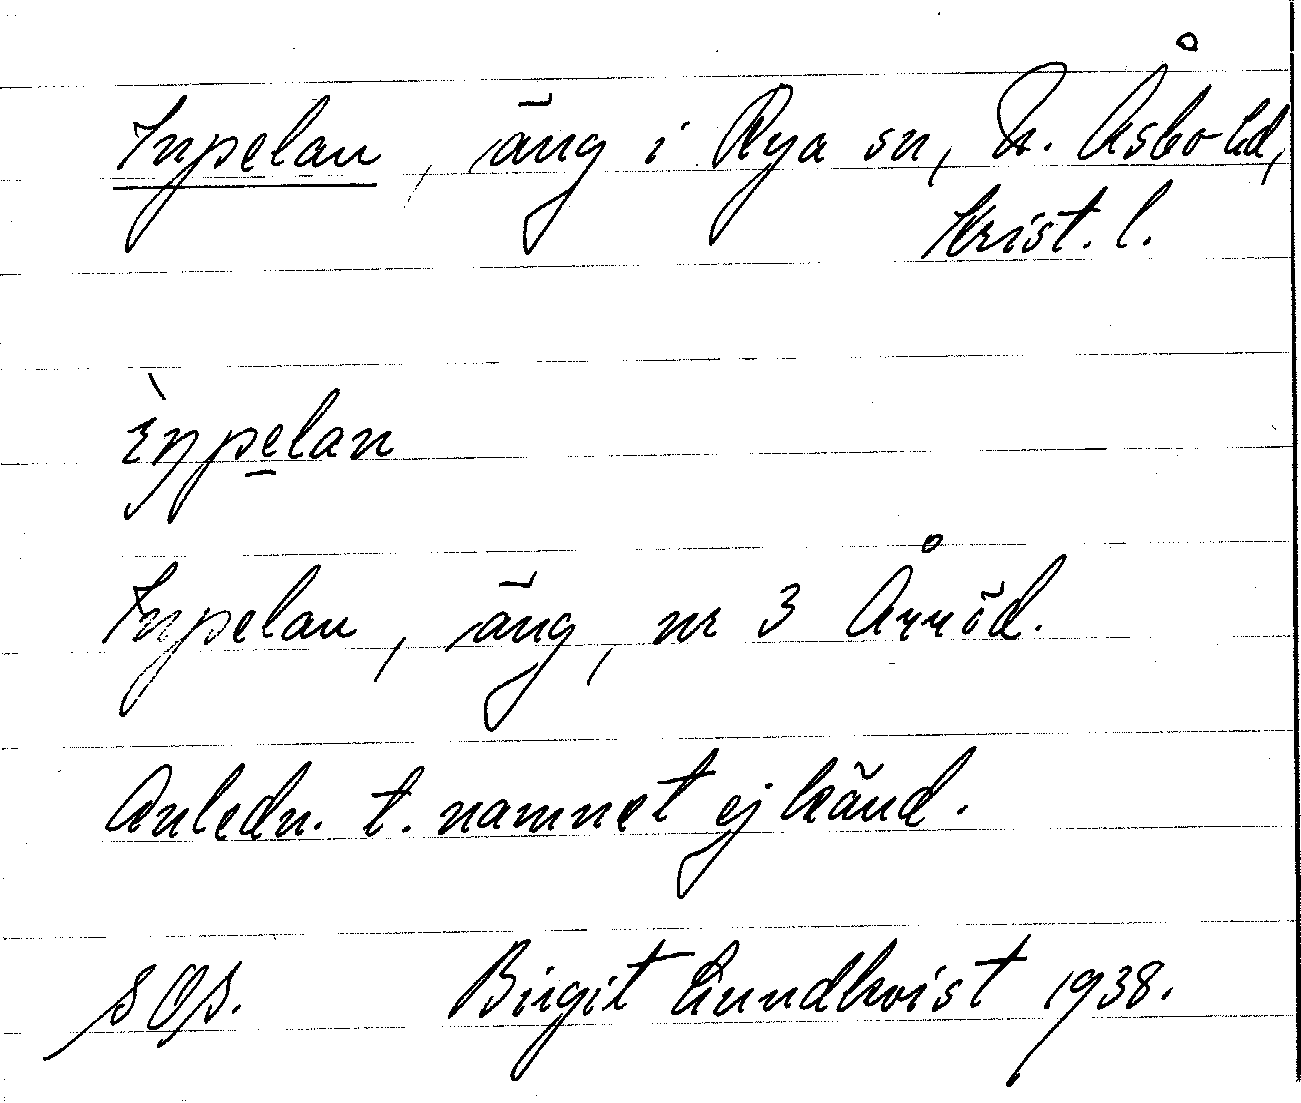 Inpelan, äng i Rya sn, N. Åsbo hd,
Krist. l.
èŋpelan
Inpelan, äng, nr 3 Årröd.
Anledn. t. namnet ej känd.
Birgit Lundkvist 1938.